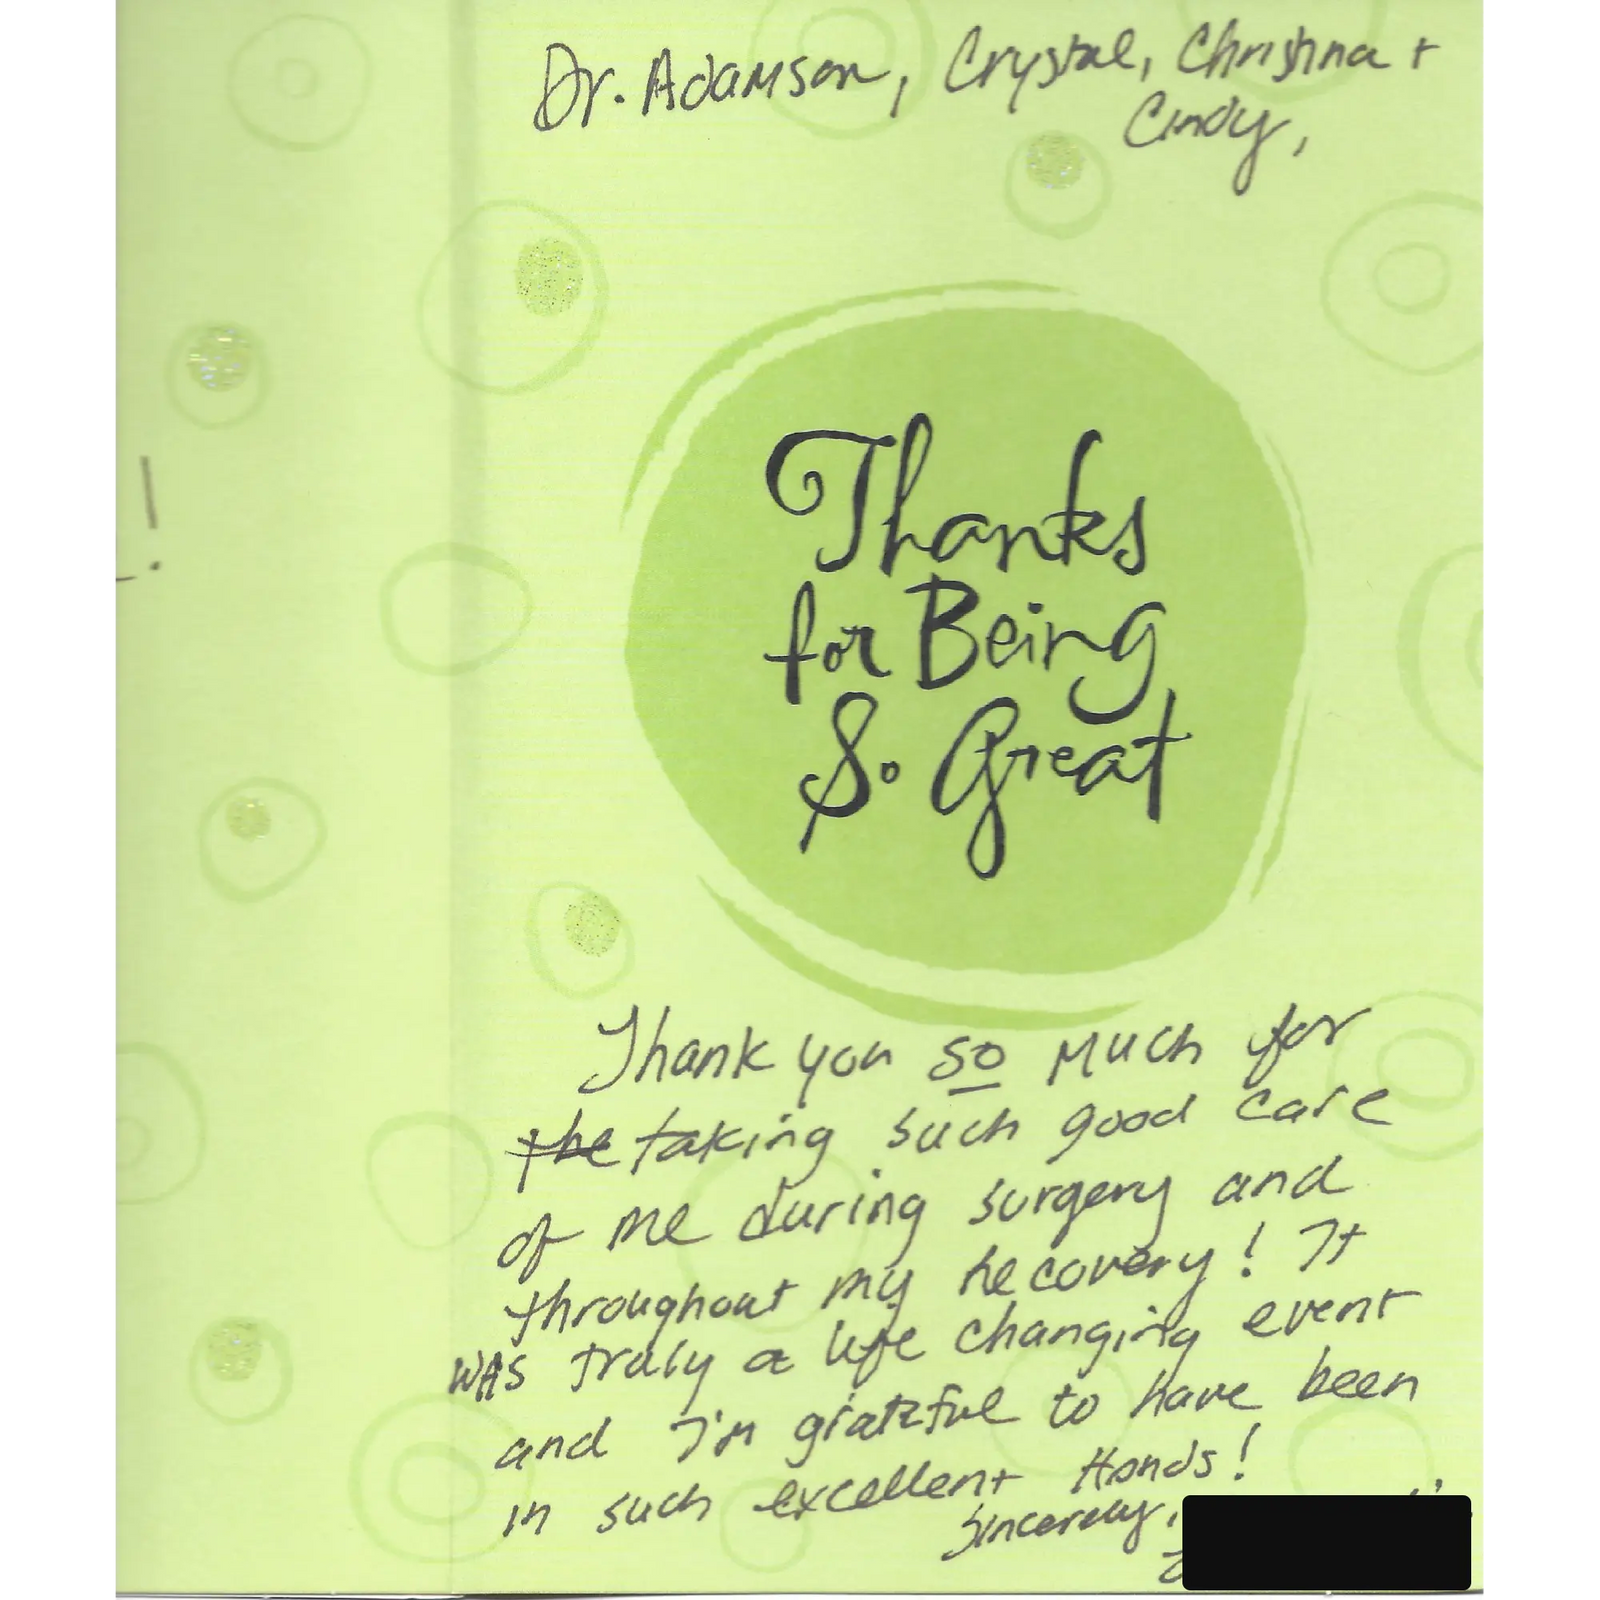 Dr. Adamson, Crystal, Christina +
Cindy,
!
Thanks
for Being
So Great
Thank you so much for
the taking such good care
of me during surgery and
throughout my recovery! It
was truly a life changing event
and I'm grateful to have been
in such excellent Hands!
Sincerely,